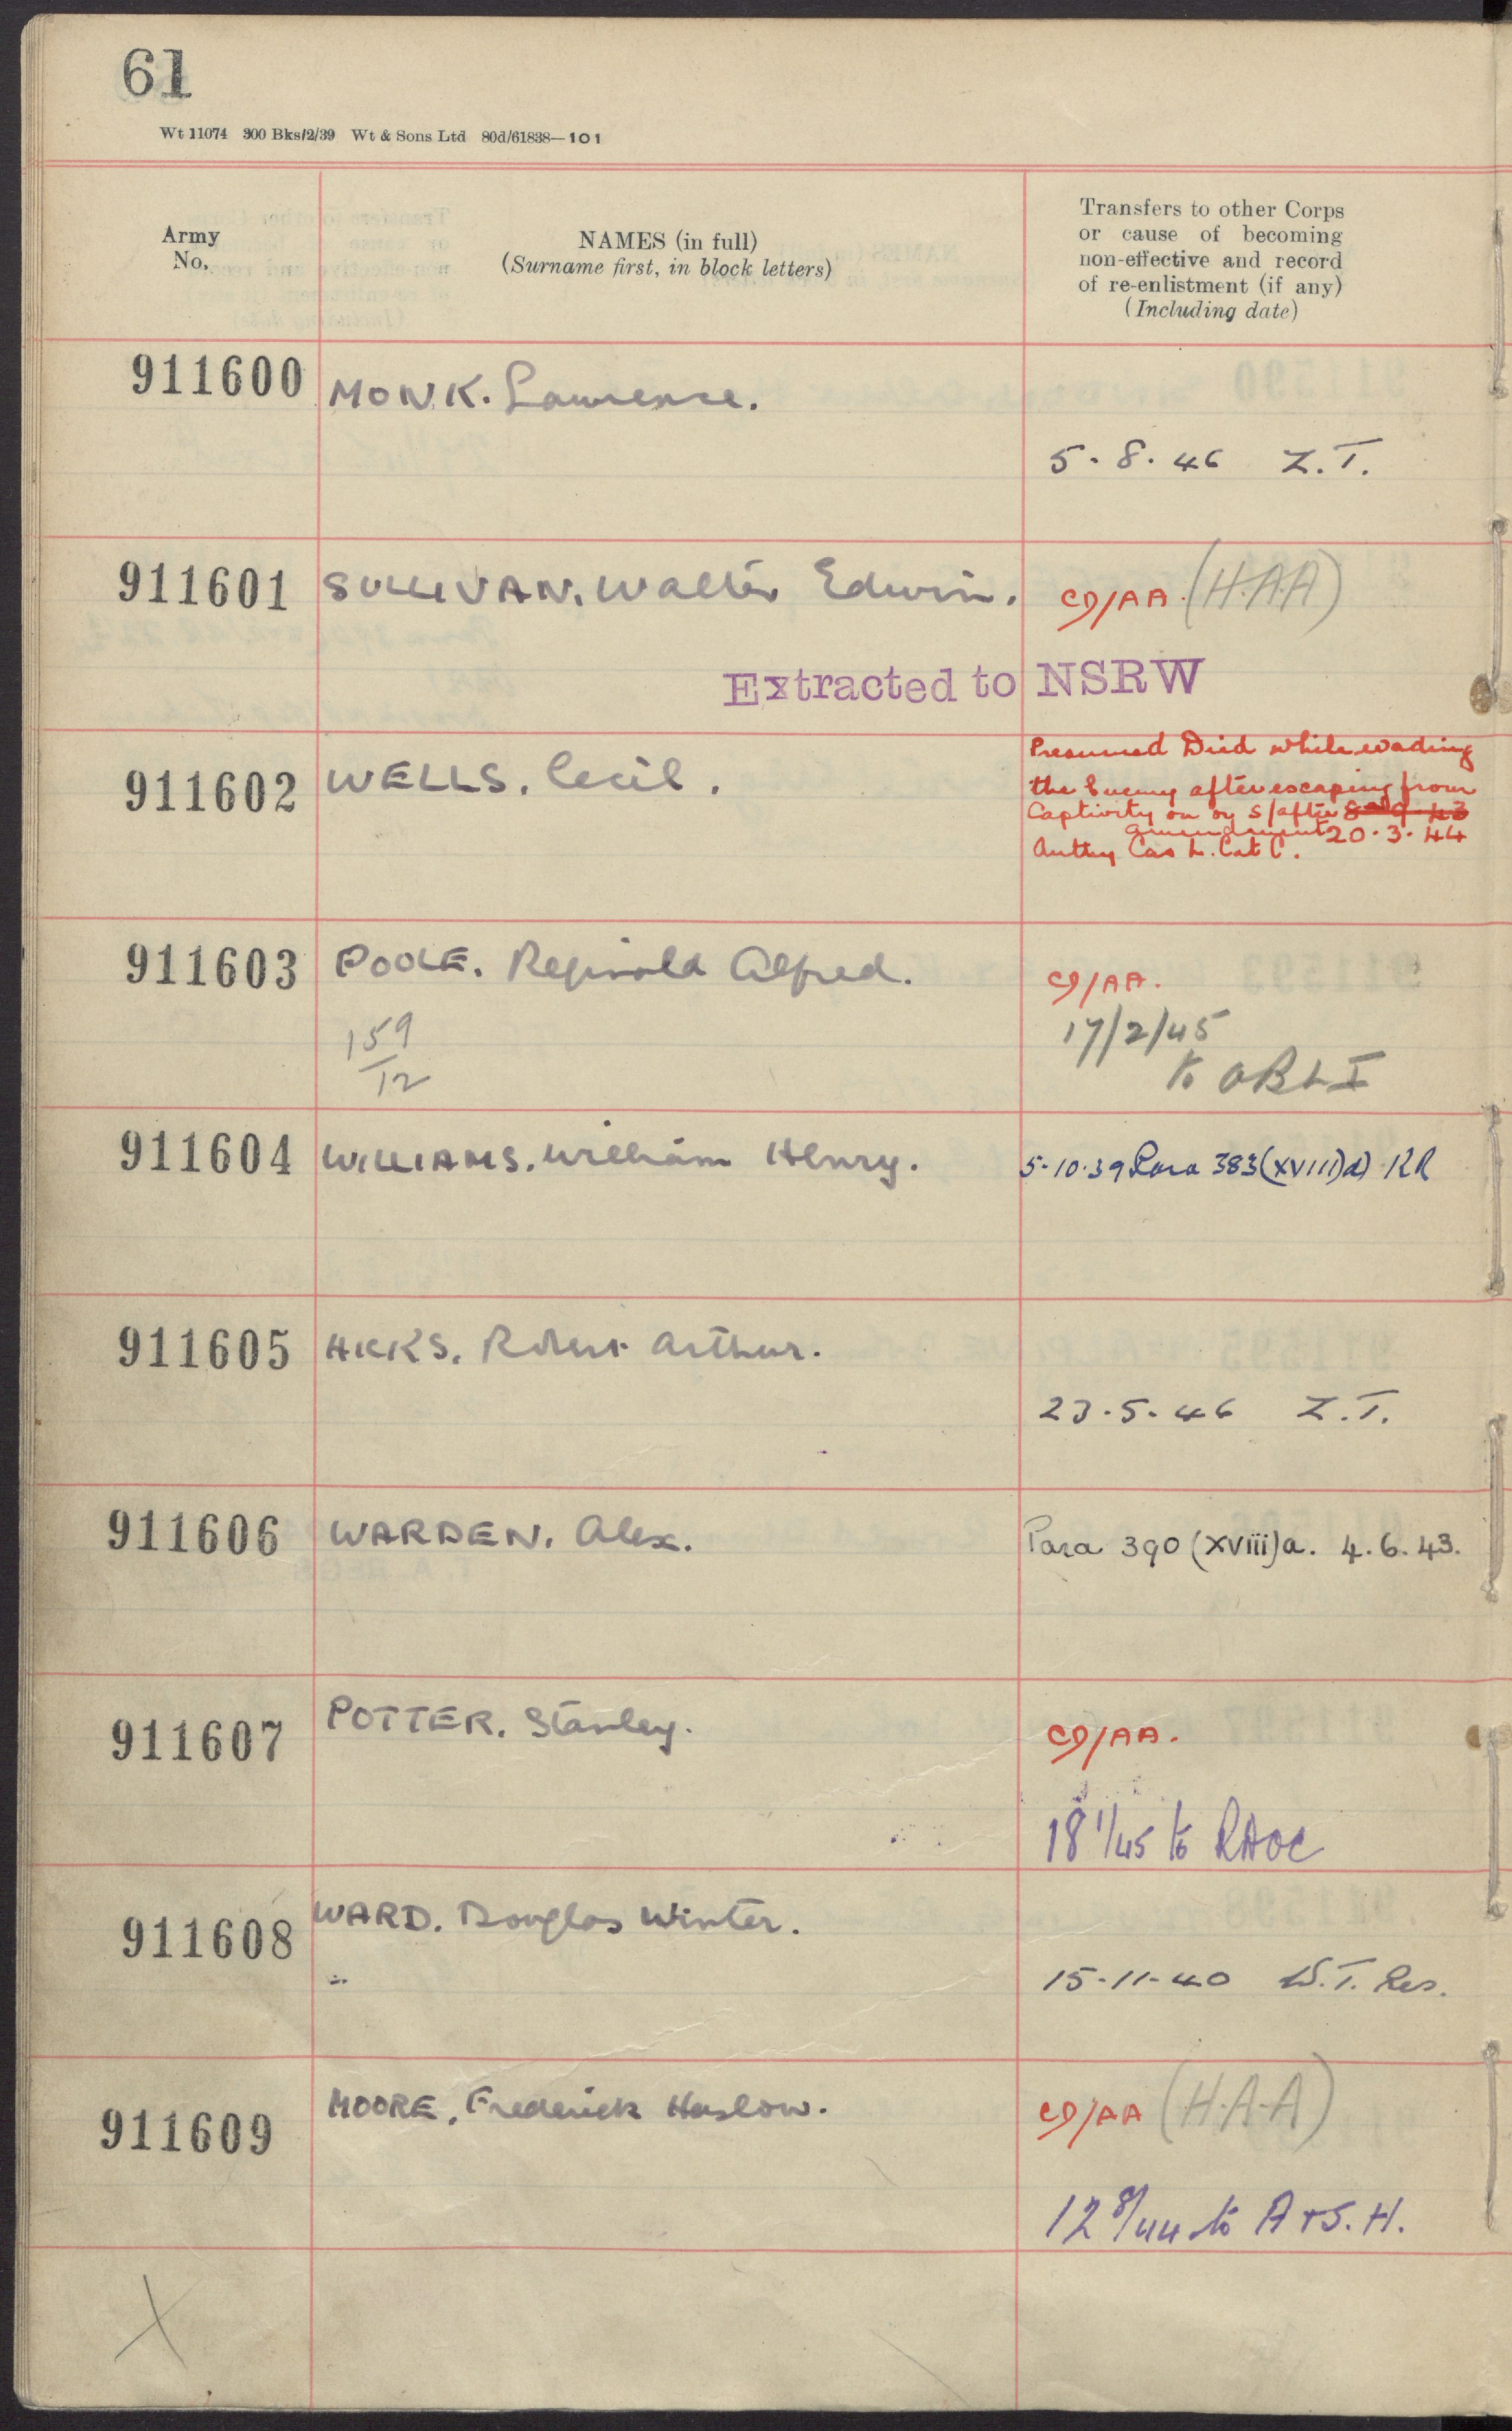 61
Wt 11074 300 Bks/2/39 Wt & Sons Ltd 80d/61838—101
Army
No.
NAMES (in full)
(Surname first, in block letters)
Transfers to other Corps
or cause of becoming
non-effective and record
of re-enlistment (if any)
(Including date)
911600 MONK. Lawrence.
5.8.46 Z.T.
911601 SULLIVAN, Walter Edwin. CD/AA. (H.A.A)
Extracted to NSRW
911602 WELLS. Cecil.
Presumed Died while evading
the Enemy after escaping from
Captivity on or s/after 8-9-43
amendment 20.3.44
Authy Cas L. Cat C.
911603 POOLE. Reginald Alfred. CD/AA.
159/12
17/2/45
to OBLI
911604 WILLIAMS. William Henry. 5.10.39 Para 383(XVIII)d) KR
911605 HICKS. Robert Arthur.
23.5.46 Z.T.
911606 WARDEN. Alex. Para 390 (XViii)a. 4.6.43.
911607 POTTER. Stanley. CD/AA.
18 1/45 to RAOC
911608 WARD. Douglas Winter.
15-11-40 W.T. Res.
911609 MOORE, Frederick Haslow. CD/AA (H.A.A)
12 8/44 to A+S.H.
X